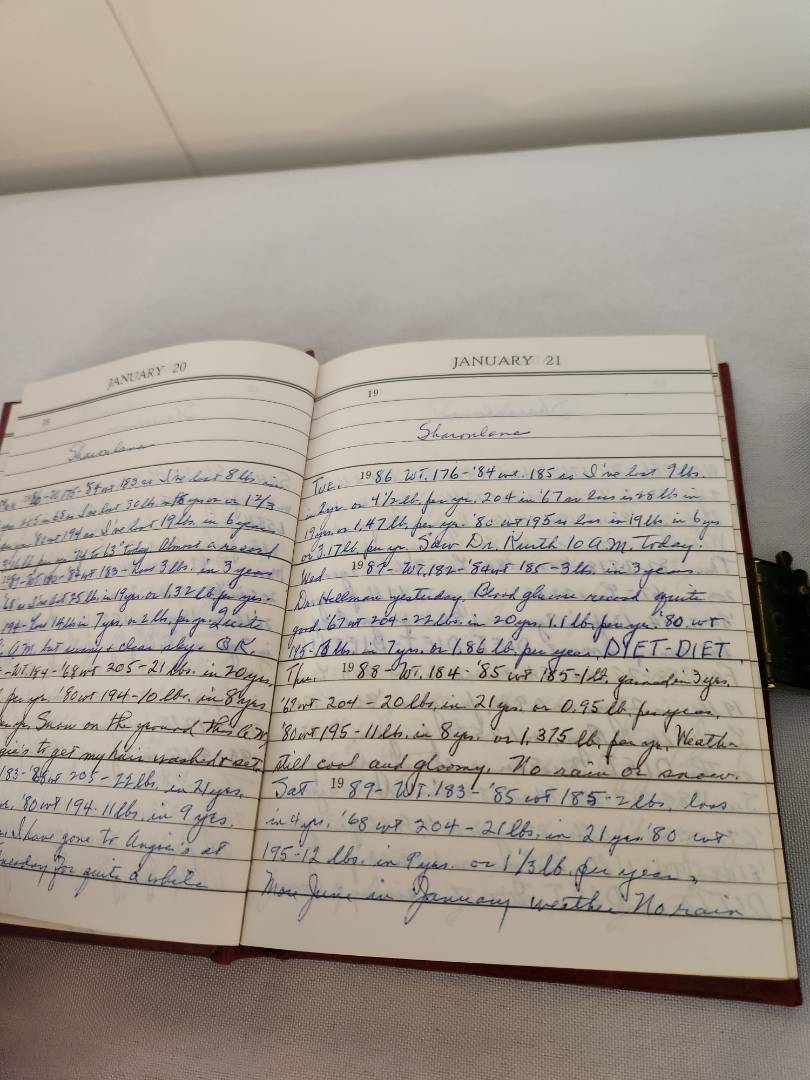 JANUARY 20
19
Sharonlane
'84 wt 183 so I've lost 8 lbs in
so I've lost 30 lbs in 18 yrs or on 1 2/3
'80 wt 194 so I've lost 19 lbs. in 6 years
today. Almost a record
'84 wt 183 - Loss 3 lbs. in 3 years
lost 25 lbs in 19 yrs. or 1.32 lb. per yr.
194 - lost 14 lbs in 7 yrs. or 2 lb. per yr. Quite
A.M. but sunny + clear sky. OK.
- WT. 184 - '68 wt 205 - 21 lbs. in 20 yrs.
per yr. '80 wt 194 - 10 lbs. in 8 yrs
Snow on the ground this A.M.
to get my hair washed + set.
183 - '68 wt 205 - 22 lbs. in 21 yrs.
'80 wt 194 - 11 lbs. in 9 yrs.
I have gone to Angie's at
for quite a while
JANUARY 21
19
Sharonlane
Tue. 1986 WT. 176 - '84 wt. 185 so I've lost 9 lbs.
in 2 yr. or 4 1/2 lb. per yr. 204 in '67 so loss is 28 lbs in
19 yrs. or 1.47 lb. per yr. '80 wt 195 so loss in 19 lb in 6 yrs
or 3.17 lb. per yr. Saw Dr. Kurth 10 A.M. Today.
Wed 1987 - WT. 182 - '84 wt 185 - 3 lbs. in 3 years
Dr. Hellman yesterday. Blood glucose record quite
good. '67 wt 204 - 22 lbs. in 20 yrs. 1.1 lb. per yr. '80 wt
195 - 13 lbs. in 7 yrs. or 1.86 lb. per year. DIET - DIET
Thu. 1988 - WT. 184 - '85 wt 185 - 1 lb. gained in 3 yrs.
204 - 20 lbs. in 21 yrs. or 0.95 lb. per year.
'80 wt 195 - 11 lbs. in 8 yrs. or 1.375 lb. per yr. Weather
still cool and gloomy. No rain or snow.
Sat 1989 - WT. 183 - '85 wt 185 - 2 lbs. loss
in 4 yrs. '68 wt 204 - 21 lbs. in 21 yrs '80 wt
195 - 12 lbs. in 9 yrs. or 1 1/3 lb. per year.
More June in January weather No rain